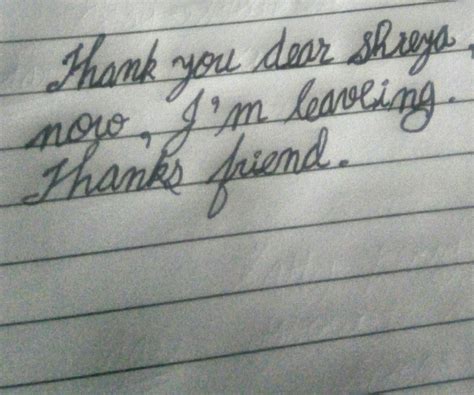 Thank you dear Shreya,
now, I'm leaveing.
Thanks friend.